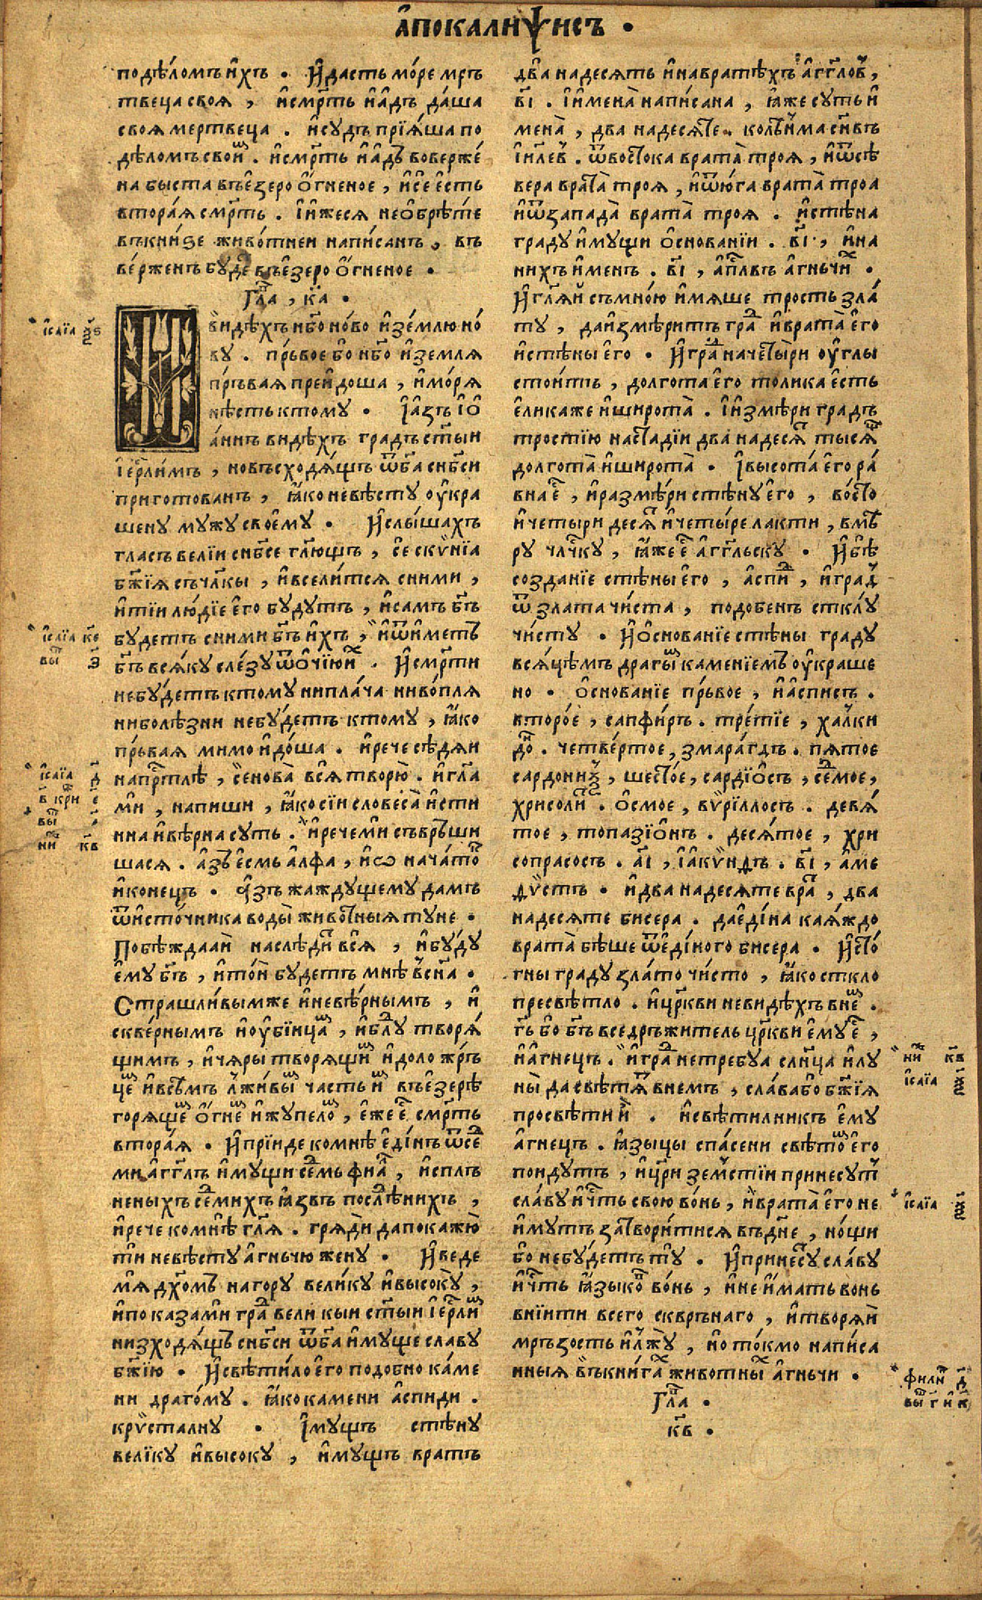 а҆покалиѱисъ .
подѣ́ломъ и҆хъ . И҆дасть мо́ре мрь
твеца своя̀ , и҆сме́рть и҆а҆дъ да́ша
своя̀ мертвеца . и҆су́дъ прїя́ша по
дѣломъ свои́мъ . и҆сме́рть и҆а҆дъ воверже́
на быста въе҆́зеро о҆́гненое , и҆се́ е҆сть
втора́я сме́рть . І҆и҆жеся не о҆брѣ́те
въкни́ѕе живо́тнеи написанъ , въ
ве́рженъ бу́де въе҆́зеро о҆́гненое .
Гла̑ , к҃а .
И҆видѣхъ не́бо но́во и҆зе́млю но́
ву . пръвое бо нб҃о и҆земля
пръ́вая преи́доша , и҆мо́ря
нѣ́сть ктому . І҆а҆зъ І҆о҆
а́ннъ видѣхъ градъ ст҃ыи
І҆ер҃лимъ , новъ сходя́щъ ѿ бг҃а снб҃си
приготованъ , ꙗ҆́ко невѣ́сту о҆у҆кра
шену му́жу своему . И҆слы́шахъ
гласъ велїи снб҃се гл҃ющъ , се́ ски́нїа
бж҃їя съчл҃кы , и҆всели́тся сними ,
и҆тїи лю́дїе е҆го бу́дутъ , и҆самъ бг҃ъ
будетъ сними бг҃ъ и҆хъ , и҆ѿи́метъ
бг҃ъ вся́ку сле́зу ѿ о҆чїю и҆́хъ . И҆сме́рти
небу́детъ ктому ни пла́ча ни во́пля
ни болѣзни небу́детъ ктому , ꙗ҆́ко
пръ́вая мимо и҆до́ша . и҆рече сѣдя́и
напр҃тлѣ , се нова̀ вся̀ творю . и҆гла
ми , напиши , ꙗ҆́ко сїи словеса̀ и҆сти
нна и҆вѣ́рна суть . и҆рече ми съвръши
шася . а҆́зъ е҆́смь а҆лфа , и҆ ѡ нача́токъ
и҆конецъ . а҆́зъ жа́ждущему дамъ
ѿи҆сто́чника воды̀ живо́тныя ту́не .
Побѣждааи̇ наслѣдитъ вся̀ , и҆бу́ду
е҆му бг҃ъ , и҆то́й будетъ мнѣ̀ въсн҃а .
Страшли́вымже и҆невѣ́рнымъ , и҆
скве́рнымъ и҆о҆у҆бїицамъ , и҆блу́ду творя́
щимъ , и҆чя́ры творя́щимъ и҆доло жръ
цемъ и҆всѣмъ лжи́вымъ часть и҆мъ въе҆́зерѣ
горящемъ о҆гнемъ и҆жу́пеломъ , е҆же е҆́сть сме́рть
втора́я . И҆прїи́де комнѣ̀ е҆ди́нъ ѿсе́д
ми а҆гг҃лъ и҆му́щи се́дмь фиа́лъ , и҆спл҃ъ
неныхъ се́дмихъ ꙗ҆́звъ послѣ́днихъ ,
и҆рече комнѣ гл҃я . гряди̇ да покажю̀
ти невѣ́сту а҆́гньчю жену̀ . И҆веде
мя̀ дх҃омъ нагору вели́ку и҆высоку̀ ,
и҆показа ми гра́дъ вели́кыи ст҃ыи І҆ер҃лимъ
низходя́щъ снб҃си ѿ бг҃а и҆муще славу
бж҃їю . И҆свѣти́ло е҆го подобно ка́ме
ни драго́му . ꙗ҆́ко камени а҆спиди .
крѷсталну . І҆мущъ стѣ́ну
вели́ку и҆высоку , и҆мущъ вратъ
два надесять и҆навратѣхъ а҆гг҃ловъ ,
в҃і . І҆и҆мена̀ написана , ꙗ҆́же суть и҆
мена̀ , два надеся́те . колѣнома сн҃въ
І҆и҃левъ . ѿвосто́ка врата̀ троя , и҆ѿсѣ́
вера врата̀ троя , и҆ѿю́га врата̀ троа
и҆ѿза́пада врата̀ троя . и҆стѣна
граду и҆мущи о҆снованїи . в҃і , и҆на
нихъ и҆менъ . в҃і , а҆пл҃въ а҆́гньчихъ .
И҆гл҃яи съмно́ю и҆мяше тро́сть зла
ту , да и҆змѣ́ритъ гра́дъ и҆врата̀ е҆го
и҆стѣ́ны е҆го . И҆гра́дъ на четы́ри о҆у҆́глы
стои́тъ , долгота̀ е҆го толика е҆сть
е҆ликаже и҆широта̀ . І҆и҆змѣ́ри градъ
тростїю на ста́дїи два̀ надеся́ть тысящъ
долгота̀ и҆широта̀ . І҆высота̀ е҆го ра́
вна е҆́сть , и҆размѣ́ри стѣну е҆го , во́сто
и҆четы́ри деся́тъ и҆четы́ре лакти , вмѣ
ру члч҃ку , ꙗ҆́же е҆́сть а҆гг҃льску . И҆бѣ̀
созданїе стѣ́ны е҆го , а҆спи́дъ , и҆градъ
ѿ злата чи́ста , подобенъ стклу̀
чи́сту . И҆о҆снованїе стѣны граду
вся́цѣмъ драгымъ каменїемъ о҆у҆краше
но . о҆снованїе пръвое , и҆а҆спи́съ .
второ́е , сапфиръ . тре́тїе , халки
до́нъ . четве́ртое , змара́гдъ . пя́тое
сардони́ѯ , шесто́е , сардїо҆съ , се́дмое ,
хрисоли́ѳъ . о҆смое , вѷри́ллосъ . девя́
тое , топазїо҆нъ . деся́тое , хри
сопрасосъ . а҃і , і҆акѷндъ . в҃і , а҆ме
ѳѷстъ . и҆два надеся́те вра́тъ , два
надеся́те бисера . да е҆ди́на кая́ждо
врата̀ бѣ́ше ѿе҆ди́ного бисера . И҆сто́
гны гра́ду зла́то чи́сто , ꙗ҆́ко сткло̀
пресвѣ́тло . и҆цр҃кви невидѣхъ внемъ .
гь҃ бо бг҃ъ вседръжитель цр҃кви е҆му е҆́сть ,
и҆а҆гнецъ . и҆гра́дъ нетребуа сл҃нца и҆лу
ны̀ да свѣ́тятъ внемъ , сла́вабо бж҃їя
просвѣти и҆̀ . и҆свѣти́лникъ е҆му
а҆гнецъ . ꙗ҆зыцы спа́сени свѣтомъ е҆го
поидутъ , и҆цр҃и земстїи принесутъ
сла́ву и҆чсть свою̀ во́нь , и҆врата̀ е҆го не
и҆мутъ затвори́тися въдне , но́щи
бо небу́детъ ту̀ . И҆принесу́тъ сла́ву
и҆чсть ꙗ҆зыкомъ во́нь , и҆не и҆́мать вонь
вни́ити всего скврънаго , и҆творя́й
мръзость и҆лжу̀ , но то́кмо напи́са
ныя въкни́гахъ живо́тныхъ а҆́гньчи .
Гла̑ .
к҃в .
і҆са́їа ѯ҃ѕ
і҆са́їа к҃е
вы́ш з҃
і҆са́їа
в҃ кри́н е҃
ни́ж к҃в
ни́ж к҃в
і҆са́їа
і҆са́їа
фили́п д҃
выш г҃ и҆ к҃